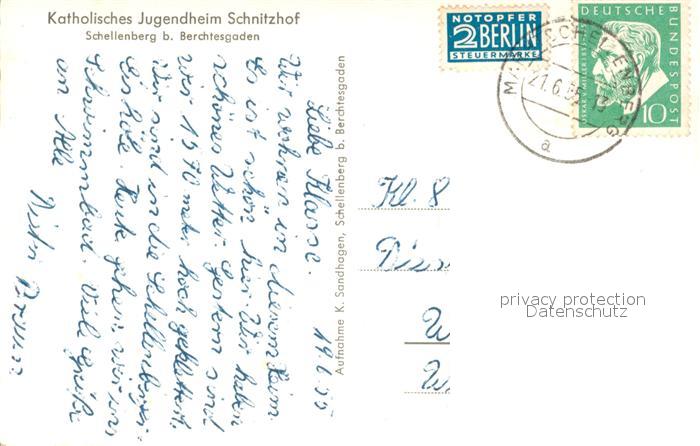 Katholisches Jugendheim Schnitzhof
Schellenberg b. Berchtesgaden
NOTOPFER
2 BERLIN
STEUERMARKE
DEUTSCHE
BUNDESPOST
OSKAR V. MILLER 1855-
10
MARKTSCHELLENBERG
21.6.55
a
19.6.55
Liebe Klasse.
Wir wohnen in diesem Heim.
Es ist schön hier. Wir haben
schönes Wetter. Gestern sind
wir 1570 meter hoch geklettert.
Wir sind in die Schellenberger
Eishöle. Heute gehen wir ins
Schwimmbad. Viele Grüße
an Alle
Aufnahme K. Sandhagen, Schellenberg b. Berchtesgaden
Kl. 8
privacy protection
Datenschutz